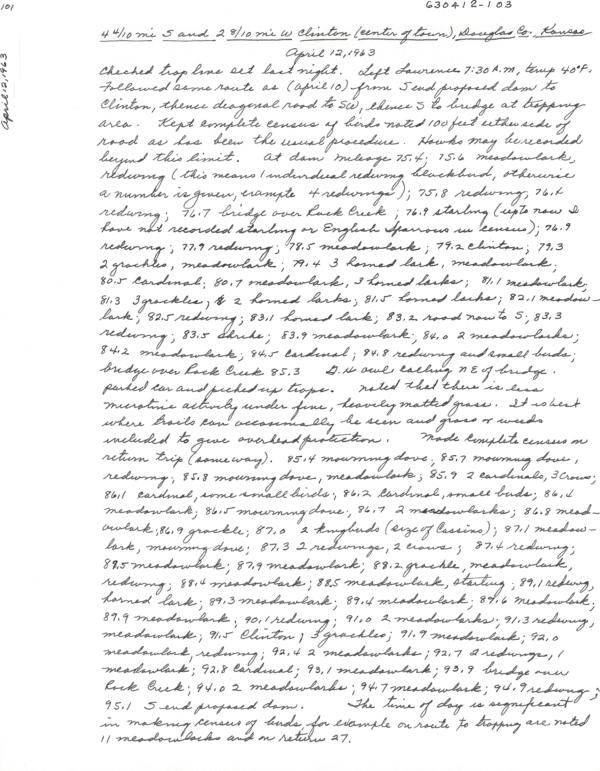 101
630412-103
April 12, 1963
4 4/10 mi S and 2 8/10 mi W Clinton (center of town), Douglas Co. Kansas
April 12, 1963
Checked trap line set last night. Left Lawrence 7:30 A.M, temp 40°F.
Followed same route as (April 10) from S end proposed dam to
Clinton, thence diagonal road to SW, thence S to bridge at trapping
area. Kept complete census of birds noted 100 feet either side of
road as has been the usual procedure. Hawks may be recorded
beyond this limit. At dam mileage 75.4; 75.6 meadowlark,
redwing (this means 1 individual redwing blackbird, otherwise
a number is given, example 4 redwings); 75.8 redwing; 76.4
redwing; 76.7 bridge over Rock Creek; 76.9 starling (up to now I
have not recorded starling or English Sparrows in census); 76.9
redwing; 77.9 redwing; 78.5 meadowlark; 79.2 Clinton; 79.3
2 grackles, meadowlark; 79.4 3 horned lark, meadowlark;
80.5 cardinal; 80.7 meadowlark, 3 horned larks; 81.1 meadowlark;
81.3 3 grackles, 2 horned larks; 81.5 horned larks; 82.1 meadow-
lark; 82.5 redwing; 83.1 horned lark; 83.2 road now to S; 83.3
redwing; 83.5 shrike; 83.9 meadowlark; 84.0 2 meadowlarks;
84.2 meadowlark; 84.5 cardinal; 84.8 redwing and small birds;
bridge over Rock Creek 85.3 G. H owl calling NE of bridge.
parked car and picked up traps. Noted that there is less
microtine activity under fine, heavily matted grass. It is best
where traits can occasionally be seen and grass or weeds
included to give overhead protection. Made complete census on
return trip (same way). 85.4 mourning dove; 85.7 mourning dove,
redwing; 85.8 mourning dove, meadowlark; 85.9 2 cardinals, 3 crows;
86.1 cardinal, some small birds; 86.2 cardinal, small birds; 86.4
meadowlark; 86.5 mourning dove; 86.7 2 meadowlarks; 86.8 mead-
owlark; 86.9 grackle; 87.0 2 kingbirds (size of Cassins); 87.1 meadow-
lark, mourning dove; 87.3 2 redwings, 2 crows; 87.4 redwing;
87.5 meadowlark; 87.9 meadowlark; 88.2 grackle, meadowlark,
redwing; 88.4 meadowlark; 88.5 meadowlark, starling; 89.1 redwing,
horned lark; 89.3 meadowlark; 89.4 meadowlark; 89.6 meadowlark;
89.9 meadowlark; 90.1 redwing; 91.0 2 meadowlarks; 91.3 redwing,
meadowlark; 91.5 Clinton; 3 grackles; 91.9 meadowlark; 92.0
meadowlark, redwing; 92.4 2 meadowlarks; 92.7 2 redwings, 1
meadowlark; 92.8 cardinal; 93.1 meadowlark; 93.9 bridge over
Rock Creek; 94.0 2 meadowlarks; 94.7 meadowlark; 94.9 redwing;
95.1 S end proposed dam. The time of day is significant
in making census of birds for example on route to trapping are noted
11 meadowlarks and on return 27.